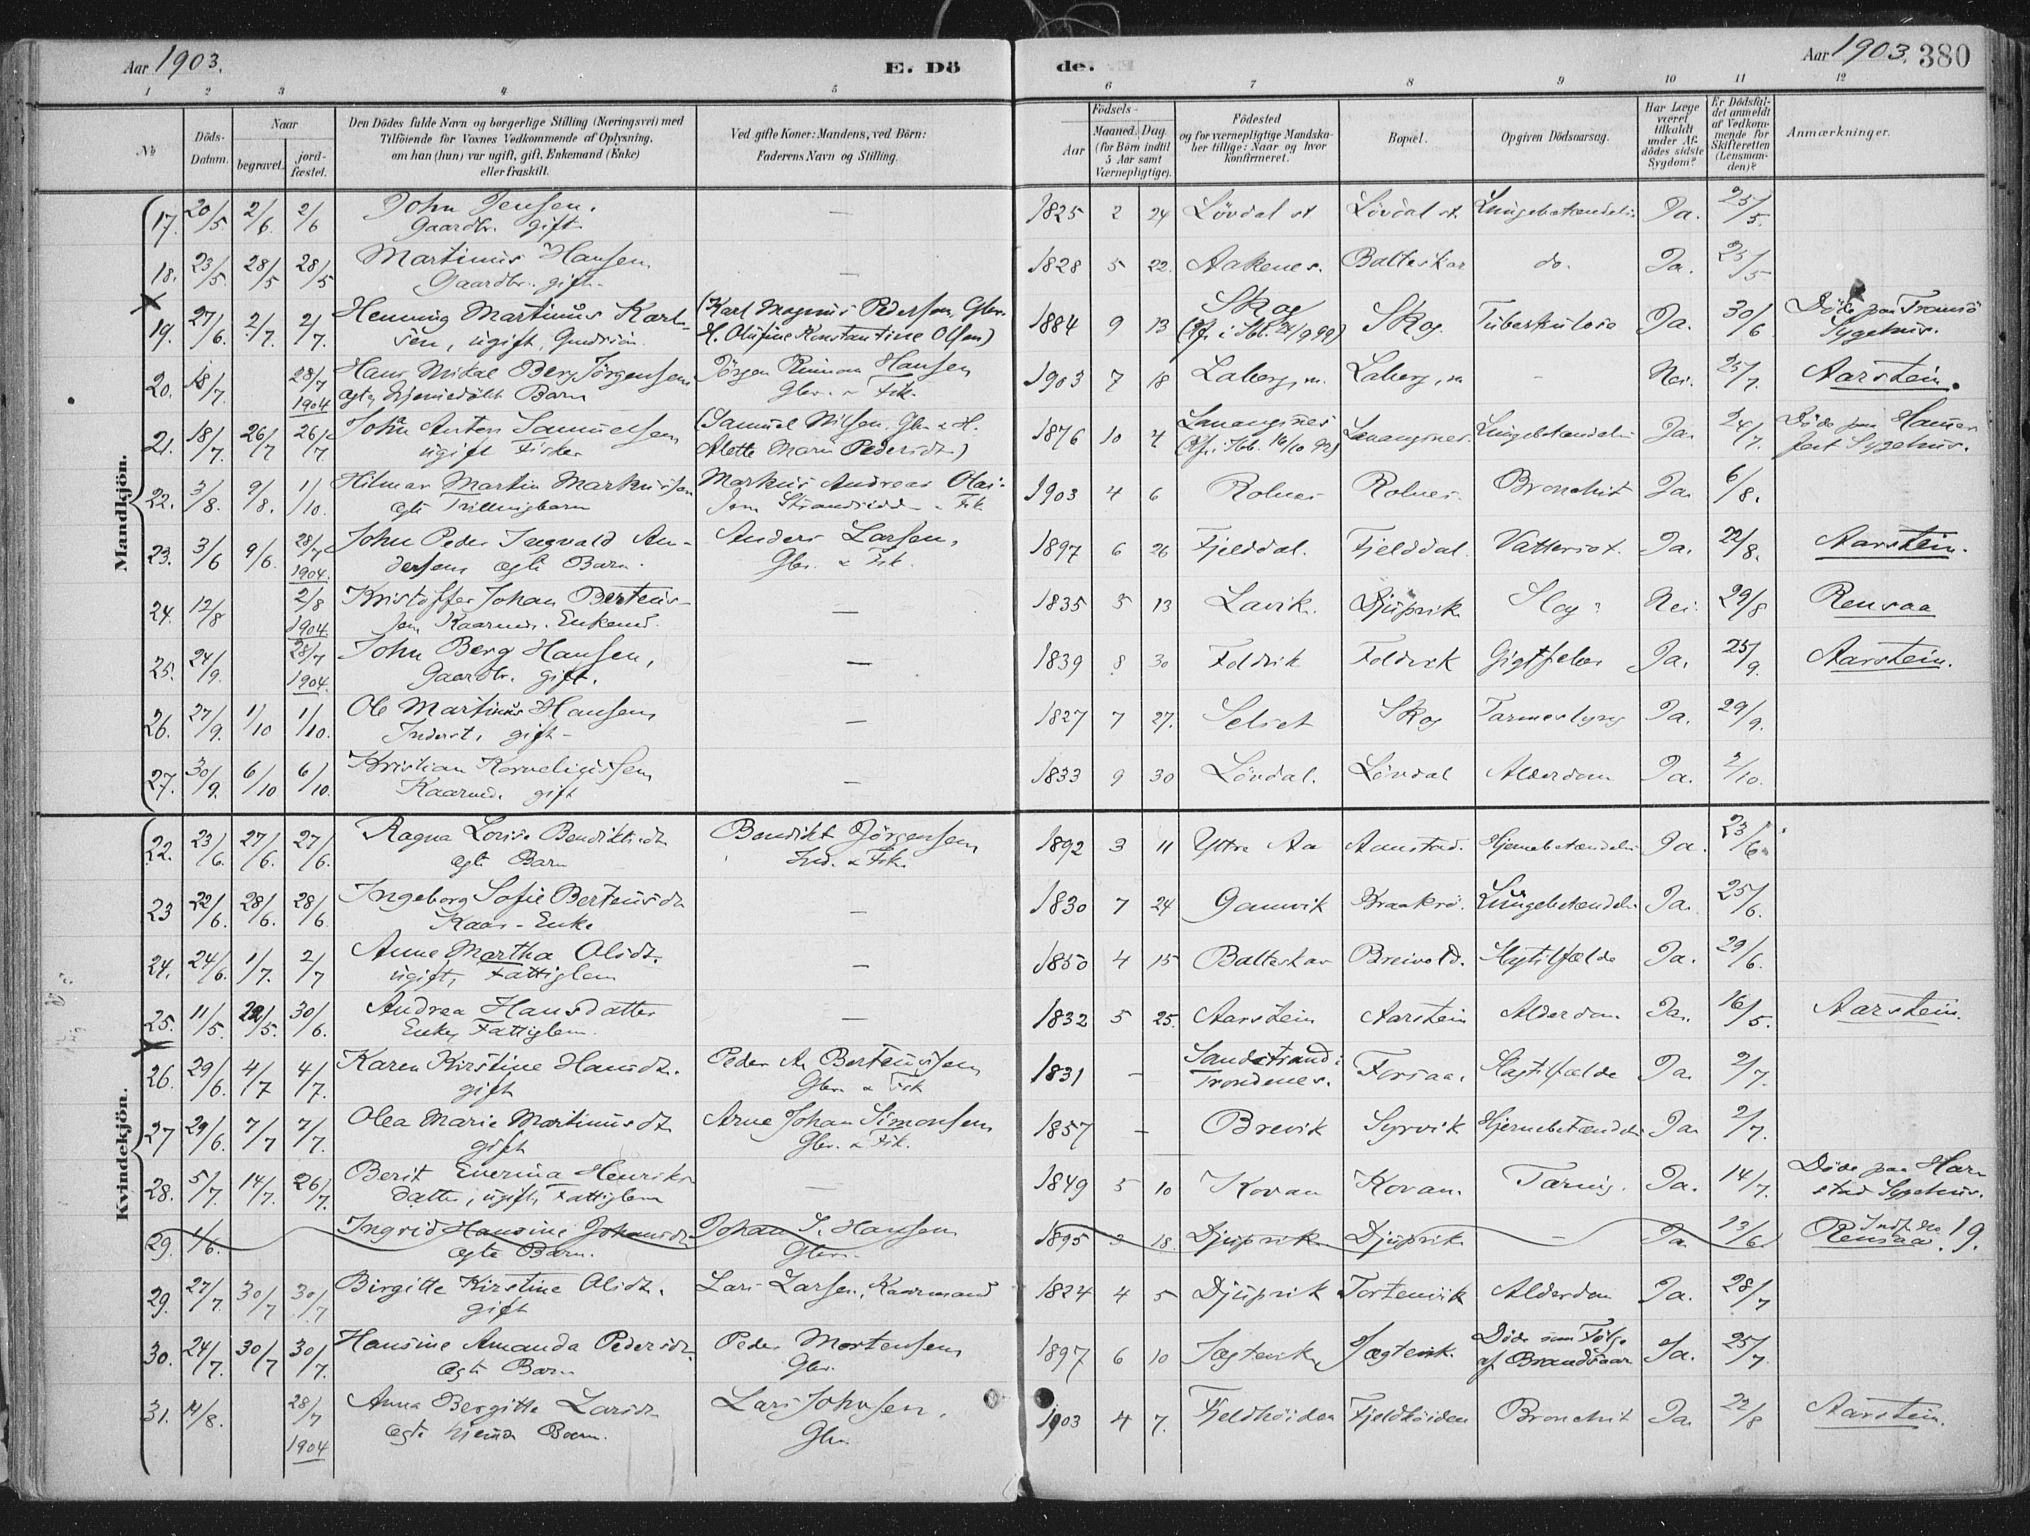 Aar 1903. E. Dö de. Aar 1903. 380
1 2 3 4 5 6 7 8 9 10 11 12
No
Döds-Datum.
Naar
begravet.
jord-fæstet.
Den Dödes fulde Navn og borgerlige Stilling (Næringsvei) med
Tilföiende for Voxnes Vedkommende af Oplysning,
om han (hun) var ugift, gift, Enkemand (Enke)
eller fraskilt.
Ved gifte Koner: Mandens, ved Börn:
Faderens Navn og Stilling.
Aar
Födsels-
Maaned. Dag.
(for Börn indtil
5 Aar samt
Værnepligtige).
Födested
og for værnepligtige Mandska-
ber tillige: Naar og hvor
konfirmeret.
Bopæl.
Opgiven Dödsaarsag.
Har Læge
været
tilkaldt
under Af-
dödes sidste
Sygdom?
Er Dödsfal-
det anmeldt
af Vedkom-
mende for
Skifteretten
(Lensman-
den)?
Anmærkninger.
Mandkjön.
17. 20/5 2/6 2/6 John Jensen. — 1825 2 24 Lövdal st Lövdal st. Lungebetændelse Ja. 25/5.
Gaardbr. gift
18. 23/5 28/5 28/5 Martinus Hansen — 1828 5 22. Aakenes. Balteskar do. Ja. 25/5
Gaardbr. gift
19. 27/6. 2/7. 2/7. Henning Martinus Karl- (Karl Magnus Pedersen, Gbr. 1884 9 13 Skog Skog. Tuberkulose Ja. 30/6 Döde paa Tromsö
sen, ugift, H. Olufine Konstantine Olsen) Sygehus.
20. 18/7. 28/7 1904 Hans Mikal Berg Jörgensen Jörgen Hansen 1903 7 18 Laberg, n. Laberg, n – Nei. 25/7. Aarstein.
ægte, hjemmedöbt Barn Gbr. & Fisk.
21. 18/7. 26/7 26/7 John Anton Samuelsen (Samuel Nilsen, Gbr. & H. 1876 10 4 Lavangsnes Lavangsnes. Lungebetændelse Ja. 24/7. Döde paa Hammer
ugift Fisker Alette Marie Pedersdt.) fest Sygehus.
22. 3/8. 9/8. 1/10. Hilmar Martin Markussen Markus Andreas Olai- 1903 4 6 Rolnes Rolnes. Bronchit Ja. 6/8.
ægte Trillingbarn sen Strandsidd. & Fisk.
23. 3/6 9/6. 28/7 1904. John Peder Ingvald An- Anders Larsen, 1897 6 26 Fjelddal. Fjelddal. Vattersot. Ja. 22/8. Aarstein.
dersen ægte Barn. Gbr. & Fisk.
24. 12/8 2/8 1904. Kristoffer Johan Berteus- — 1835 5 13 Lavik. Djupvik Slag Nei. 29/8 Rensaa
sen Kaarmd. Enkemd.
25. 24/9. 28/7 1904. John Berg Hansen, — 1839 8 30 Foldvik Foldvik Gigtfeber Ja. 25/9. Aarstein.
Gaardbr. gift.
26. 27/9. 1/10 1/10. Ole Martinus Hansen — 1827 7 27. Selset Skog Ja. 29/9.
Inderst, gift
27. 30/9. 6/10 6/10. Kristian Korneliussen — 1833 9 30 Lövdal. Lövdal Alderdom Ja. 2/10.
Kaarmd. gift
Kvindekjön.
22. 23/6. 27/6. 27/6. Ragna Lovise Bendiktsdt. Bendikt Jörgensen 1892 3 11 Ytre Aa Aanstad. Hjernebetændelse Ja. 23/6.
ægte Barn Ind. & Fisk.
23 22/6. 28/6. 28/6. Ingeborg Sofie Berteusdt. — 1830 7 24 Gamvik Kraakrö. Lungebetændelse Ja. 25/6.
Kaar-Enke
24. 24/6. 1/7. 2/7 Anne Martha Olsdt. — 1850 4 15 Balteskar Breivold. Slagtilfælde Ja. 29/6.
ugift, Fattiglem
25. 11/5. 22/5. 30/6. Andrea Hansdatter — 1832 5 25. Aarstein Aarstein Alderdom Ja. 16/5. Aarstein.
Enke, Fattiglem.
26. 29/6. 4/7 4/7. Karen Kirstine Hansdt. Peder A. Berteussen 1831 – Sandstrand i Forsaa. Slagtilfælde Ja. 2/7.
gift Gbr. & Fisk Trondenes.
27 29/6. 7/7 7/7. Olea Marie Martinusdt. Arne Johan Simonsen 1857 – Brevik Syrvik Hjernebetændelse Ja. 2/7.
gift Gbr. & Fisk.
28. 5/7. 14/7. 26/7. Berit Everina Henriks- — 1849 5 10 Kovan Kovan. Ja. 14/7. Döde paa Har
datter, ugift, Fattiglem stad Sygehus.
29. 1/6. Ingrid Hansine Johansdt. Johan S. Hansen 1895 3 18. Djupvik Djupvik – Ja 13/6 Indf. No 19.
ægte Barn. Gbr. Rensaa
29. 27/7. 30/7 30/7 Birgitte Kirstine Olsdt. Lars Larsen, Kaarmand 1824 4 5 Djupvik Tortenvik Alderdom Ja. 28/7
gift
30. 24/7. 30/7 30/7. Hansine Amanda Pedersdt. Peder Mortensen 1897 6 10 Sægtevik Sægtevik. Döde som Fölge Ja. 25/7.
ægte Barn Gbr. af Brandsaar
31. 14/8. 28/7 1904 Anna Bergitte Larsdt. Lars Johnsen, 1903 4 7. Fjeldhöiden Fjeldhöiden Bronchit Ja. 22/8 Aarstein.
ægte hjemmed. Barn. Gbr.